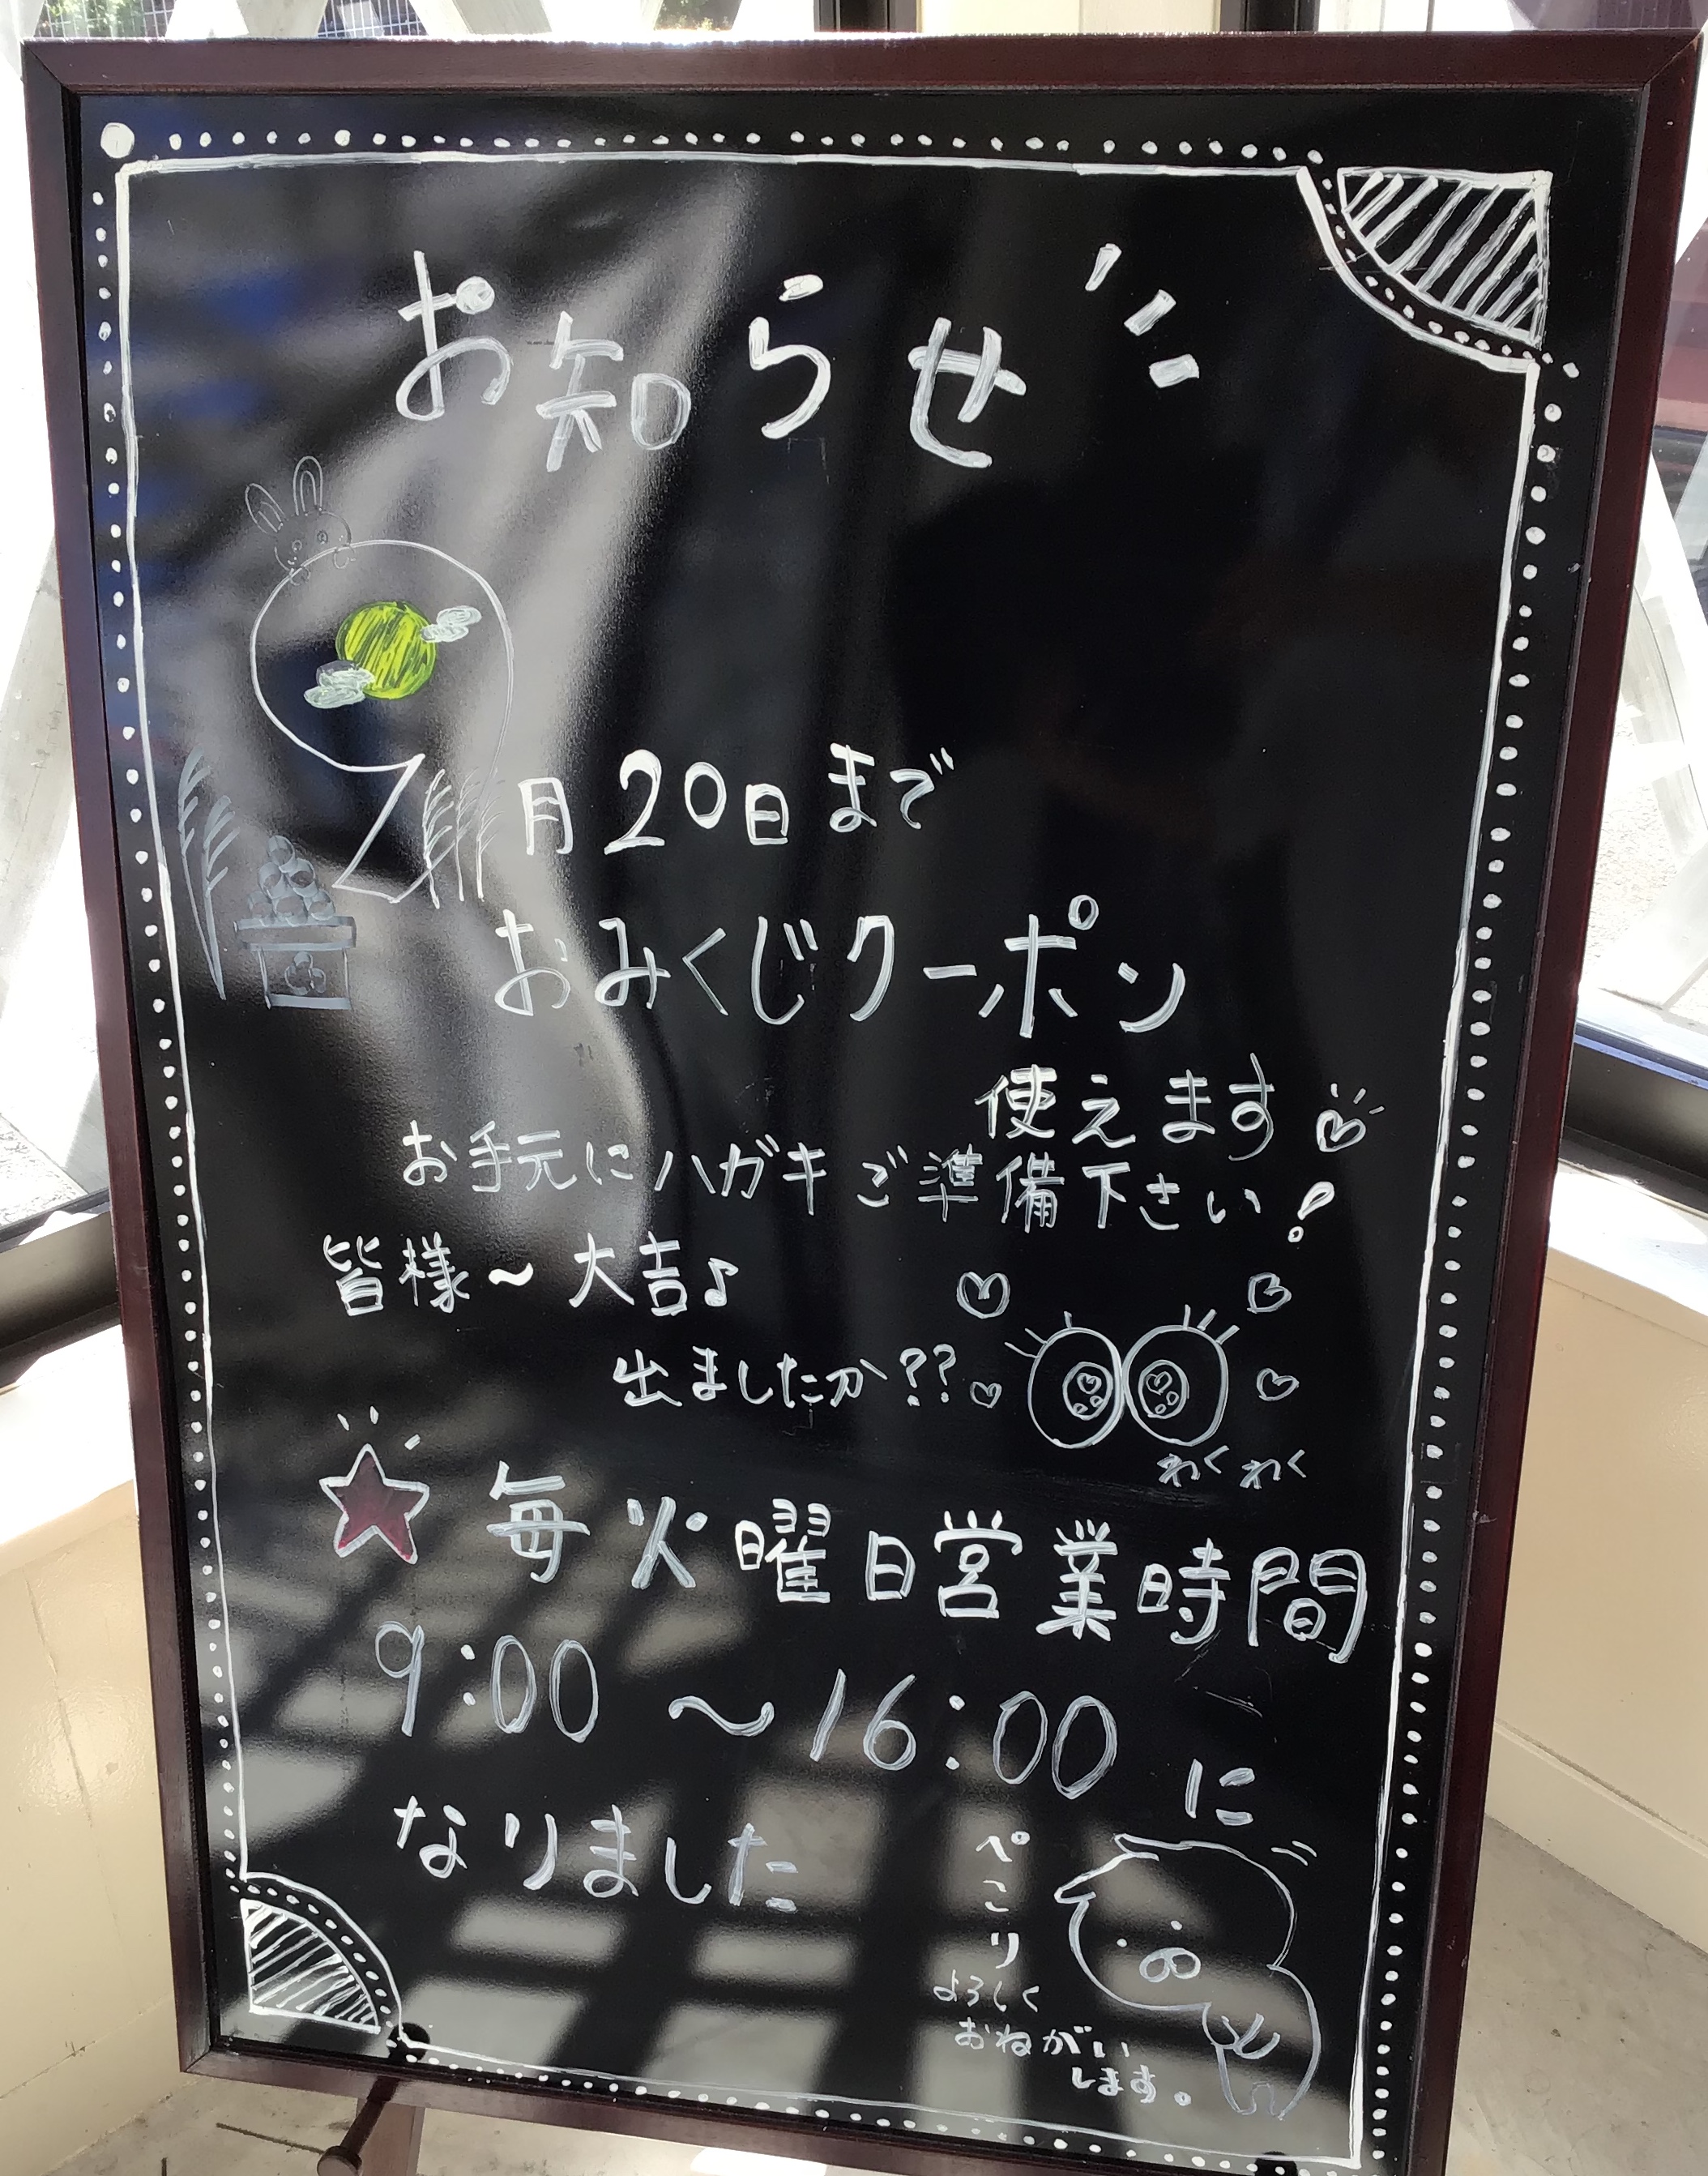 お知らせ
9月20日まで
おみくじクーポン
使えます
お手元にハガキご準備下さい!
皆様~大吉♪
出ましたか??
わくわく
毎火曜日営業時間
9:00~16:00に
なりました
ぺこり
よろしく
おねがい
します。